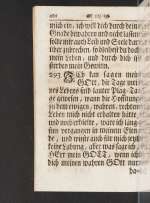 mich ein, ich will dich durch dein
Gnade bewahren und nicht lassen
solte mir auch Leib und Seele dar-
über zubrechen, so bistu doch
mein Leben, und durch dich ist
sterben mein Gewinn.
293 Ich kan sagen mein
GOtt, die Tage mei-
nes Lebens sind lauter Plag-Ta-
ge gewesen, wann die Hoffnung
zu dem ewigen, anderen, bessern
Leben mich nicht erhalten hätte
und noch erhielte, wäre ich läng-
sten vergangen in meinem Elen-
de, und wuste auch für mich
keine Labung, aber was sage ich
HErr mein GOTT, wenn ich
dich meinen wahren GOtt nur
ha-